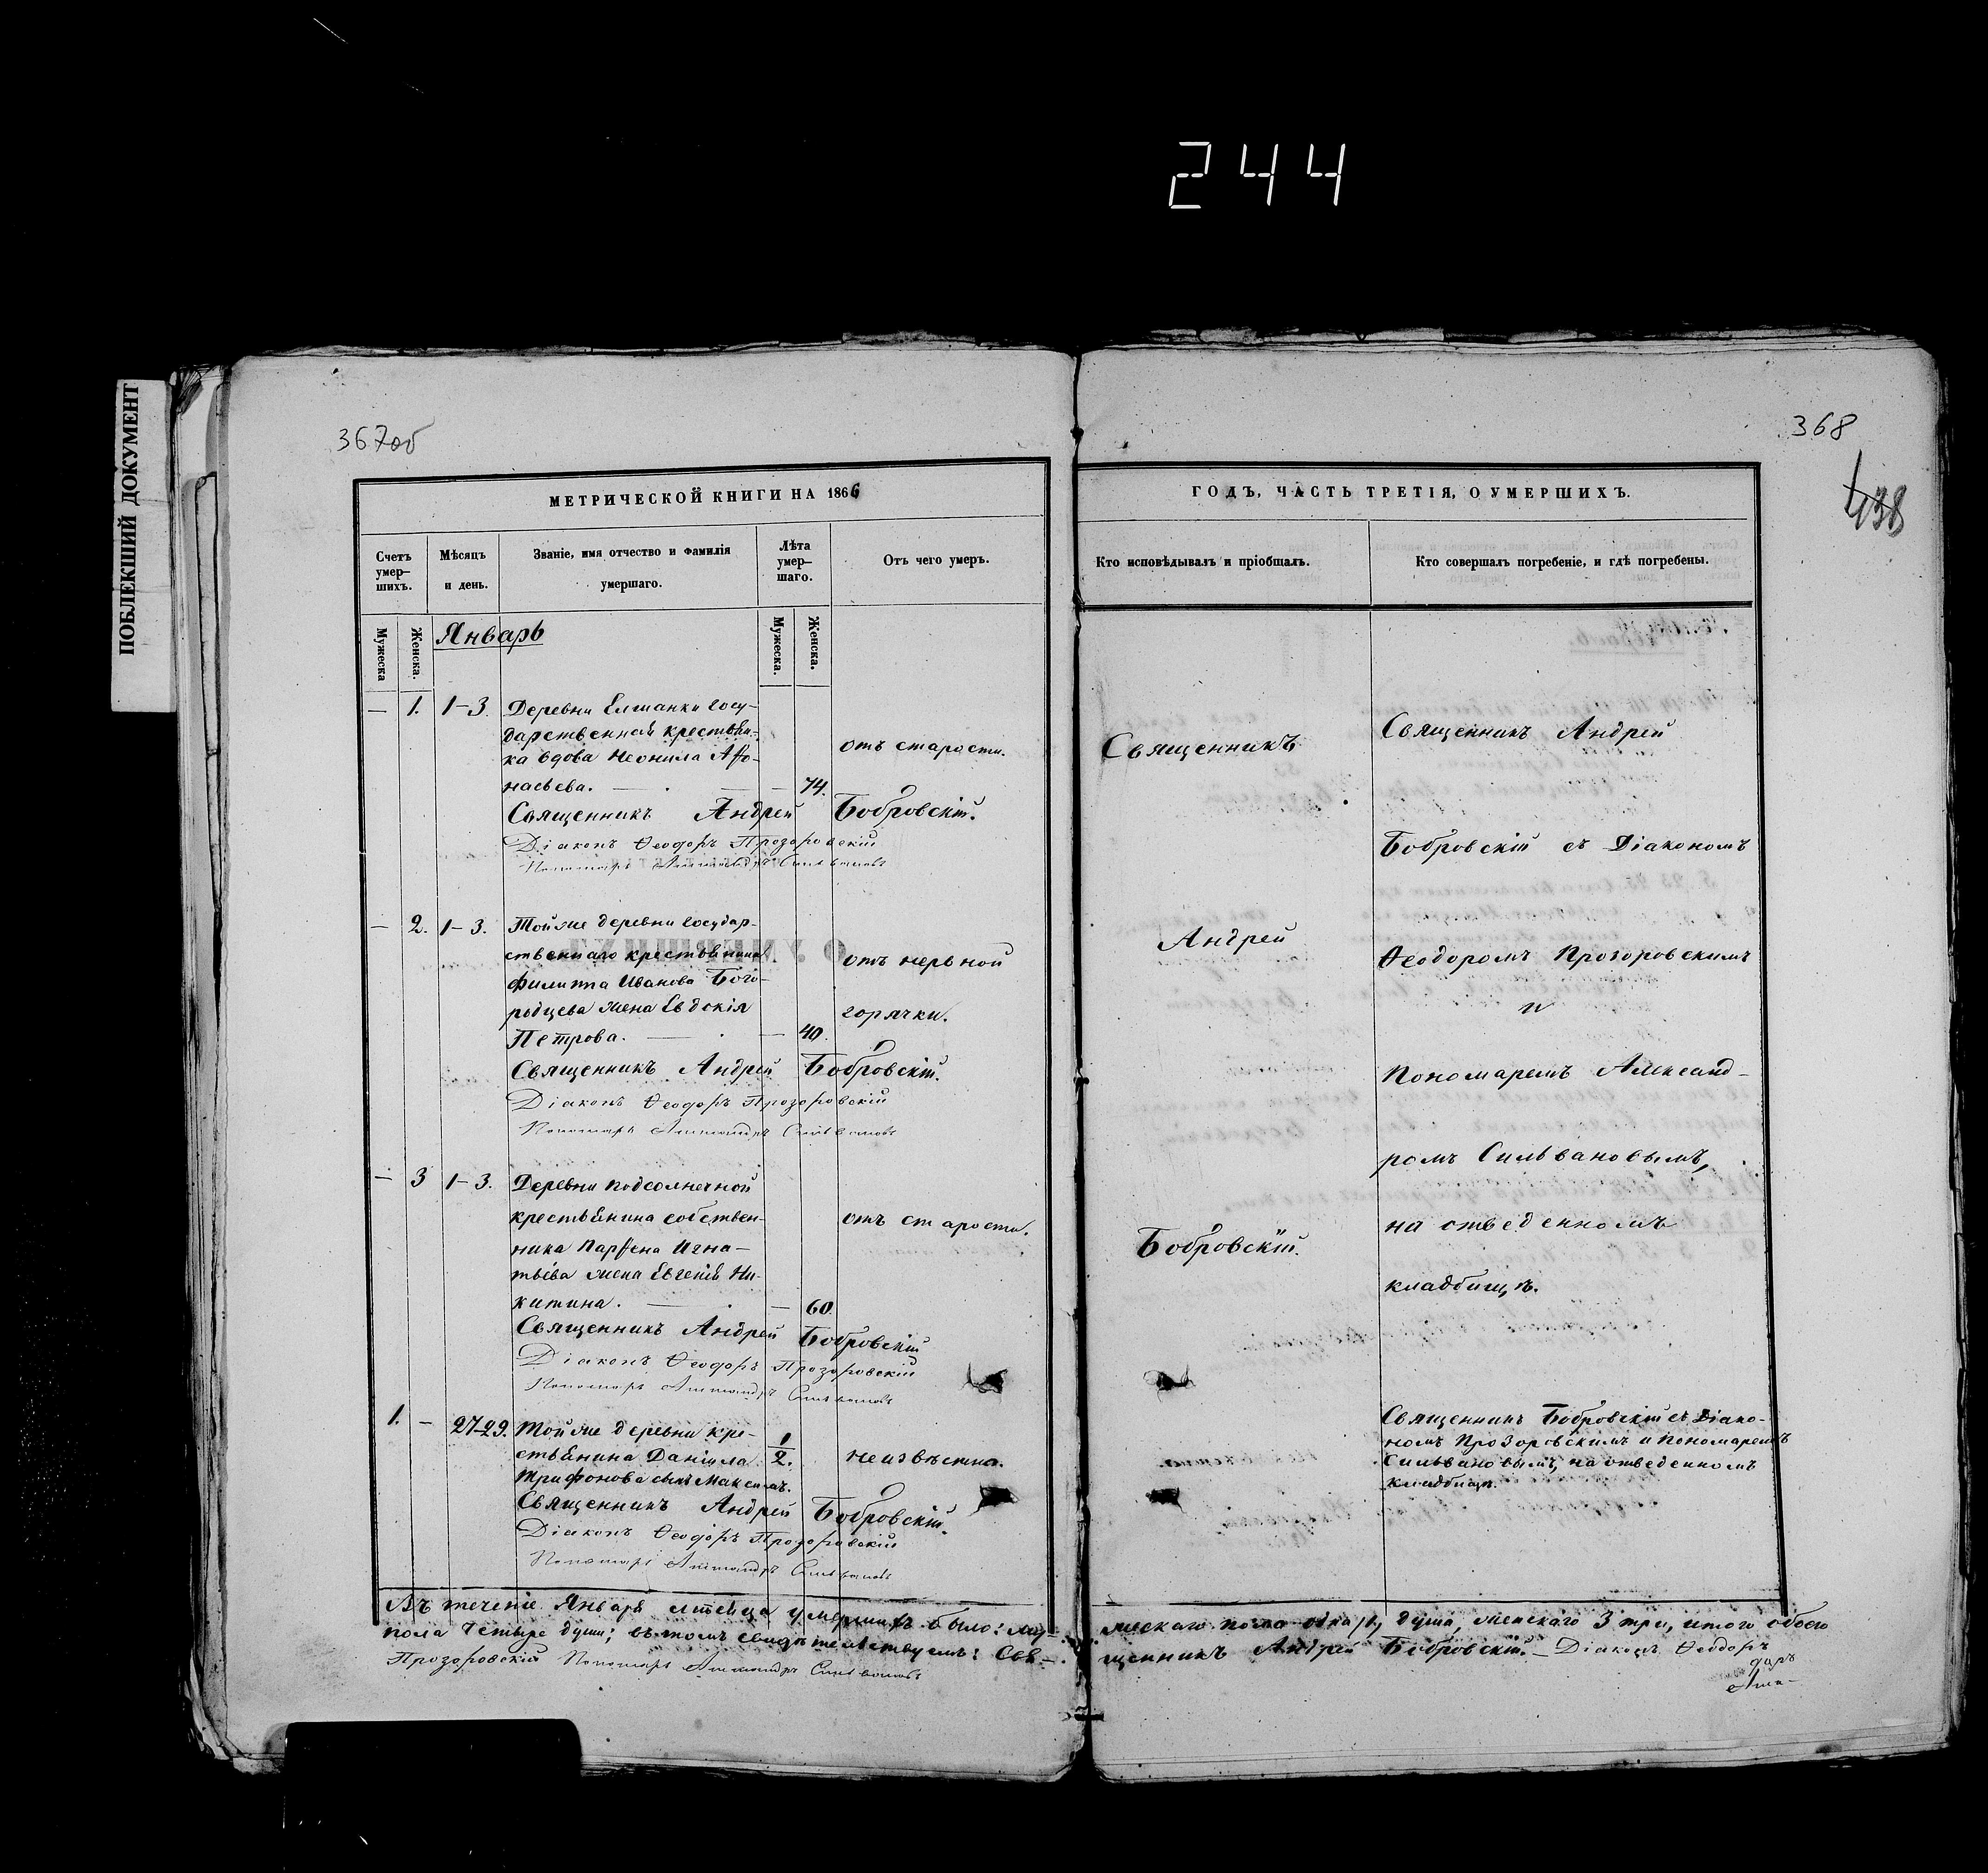 244
ПОБЛЕКШИЙ ДОКУМЕНТ
367об
МЕТРИЧЕСКОЙ КНИГИ НА 1866
Счетъ умер-
шихъ.
Мѣсяцъ
и день.
Званіе, имя отчество и фамилія
умершаго.
Лѣта
умер-
шаго.
Отъ чего умеръ.
Мужеска
Женска.
Мужеска.
Женска.
Январь
— 1. 1-3. Деревни Елшанки госу-
дарственной крестьян-
ка вдова Неонила Афо-
насьева. — 74.
отъ старости.
Священникъ Андрей Бобровскій.
Діаконъ Ѳеодоръ Прозоровскій
Пономарь Александръ Сильвановъ
— 2. 1-3. Тойже деревни государ-
ственнаго крестьянина
Филиппа Иванова Бого-
родцева жена Евдокія
Петрова. — 40.
отъ нервной
горячки.
Священникъ Андрей Бобровскій.
Діаконъ Ѳеодоръ Прозоровскій
Пономарь Александръ Сильвановъ
— 3 1-3. Деревни Подсолнечной
крестьянина собствен-
ника Парфена Игна-
тьева жена Евгенія Ни-
китина. — 60.
отъ старости.
Священникъ Андрей Бобровскій
Діаконъ Ѳеодоръ Прозоровскій
Пономарь Александръ Сильвановъ
1. — 27-29. Тойже деревни кре-
стьянина Даніила
Трифонова сынъ Максимъ.
1/2.
неизвѣстно.
Священникъ Андрей Бобровскій.
Діаконъ Ѳеодоръ Прозоровскій
Пономарь Александръ Сильвановъ
Въ теченіе Января мѣсяца умершихъ было: му-
пола четыре души; въ томъ свидѣтельствуемъ: Свя-
Прозоровскій Пономарь Александръ Сильвановъ
368
438
ГОДЪ, ЧАСТЬ ТРЕТІЯ, О УМЕРШИХЪ.
Кто исповѣдывалъ и пріобщалъ.
Кто совершалъ погребеніе, и гдѣ погребены.
Священникъ
Андрей
Бобровскій.
Священникъ Андрей
Бобровскій съ Діакономъ
Ѳеодоромъ Прозоровскимъ
и
Пономаремъ Александ-
ромъ Сильвановымъ,
на отведенномъ
кладбищѣ.
Священникъ Бобровскій съ Діако-
номъ Прозоровскимъ и Пономаремъ
Сильвановымъ, на отведенномъ
кладбищѣ.
жескаго пола одна /1/, душа, женскаго 3 три, итого обоего
щенникъ Андрей Бобровскій. — Діаконъ Ѳеодоръ